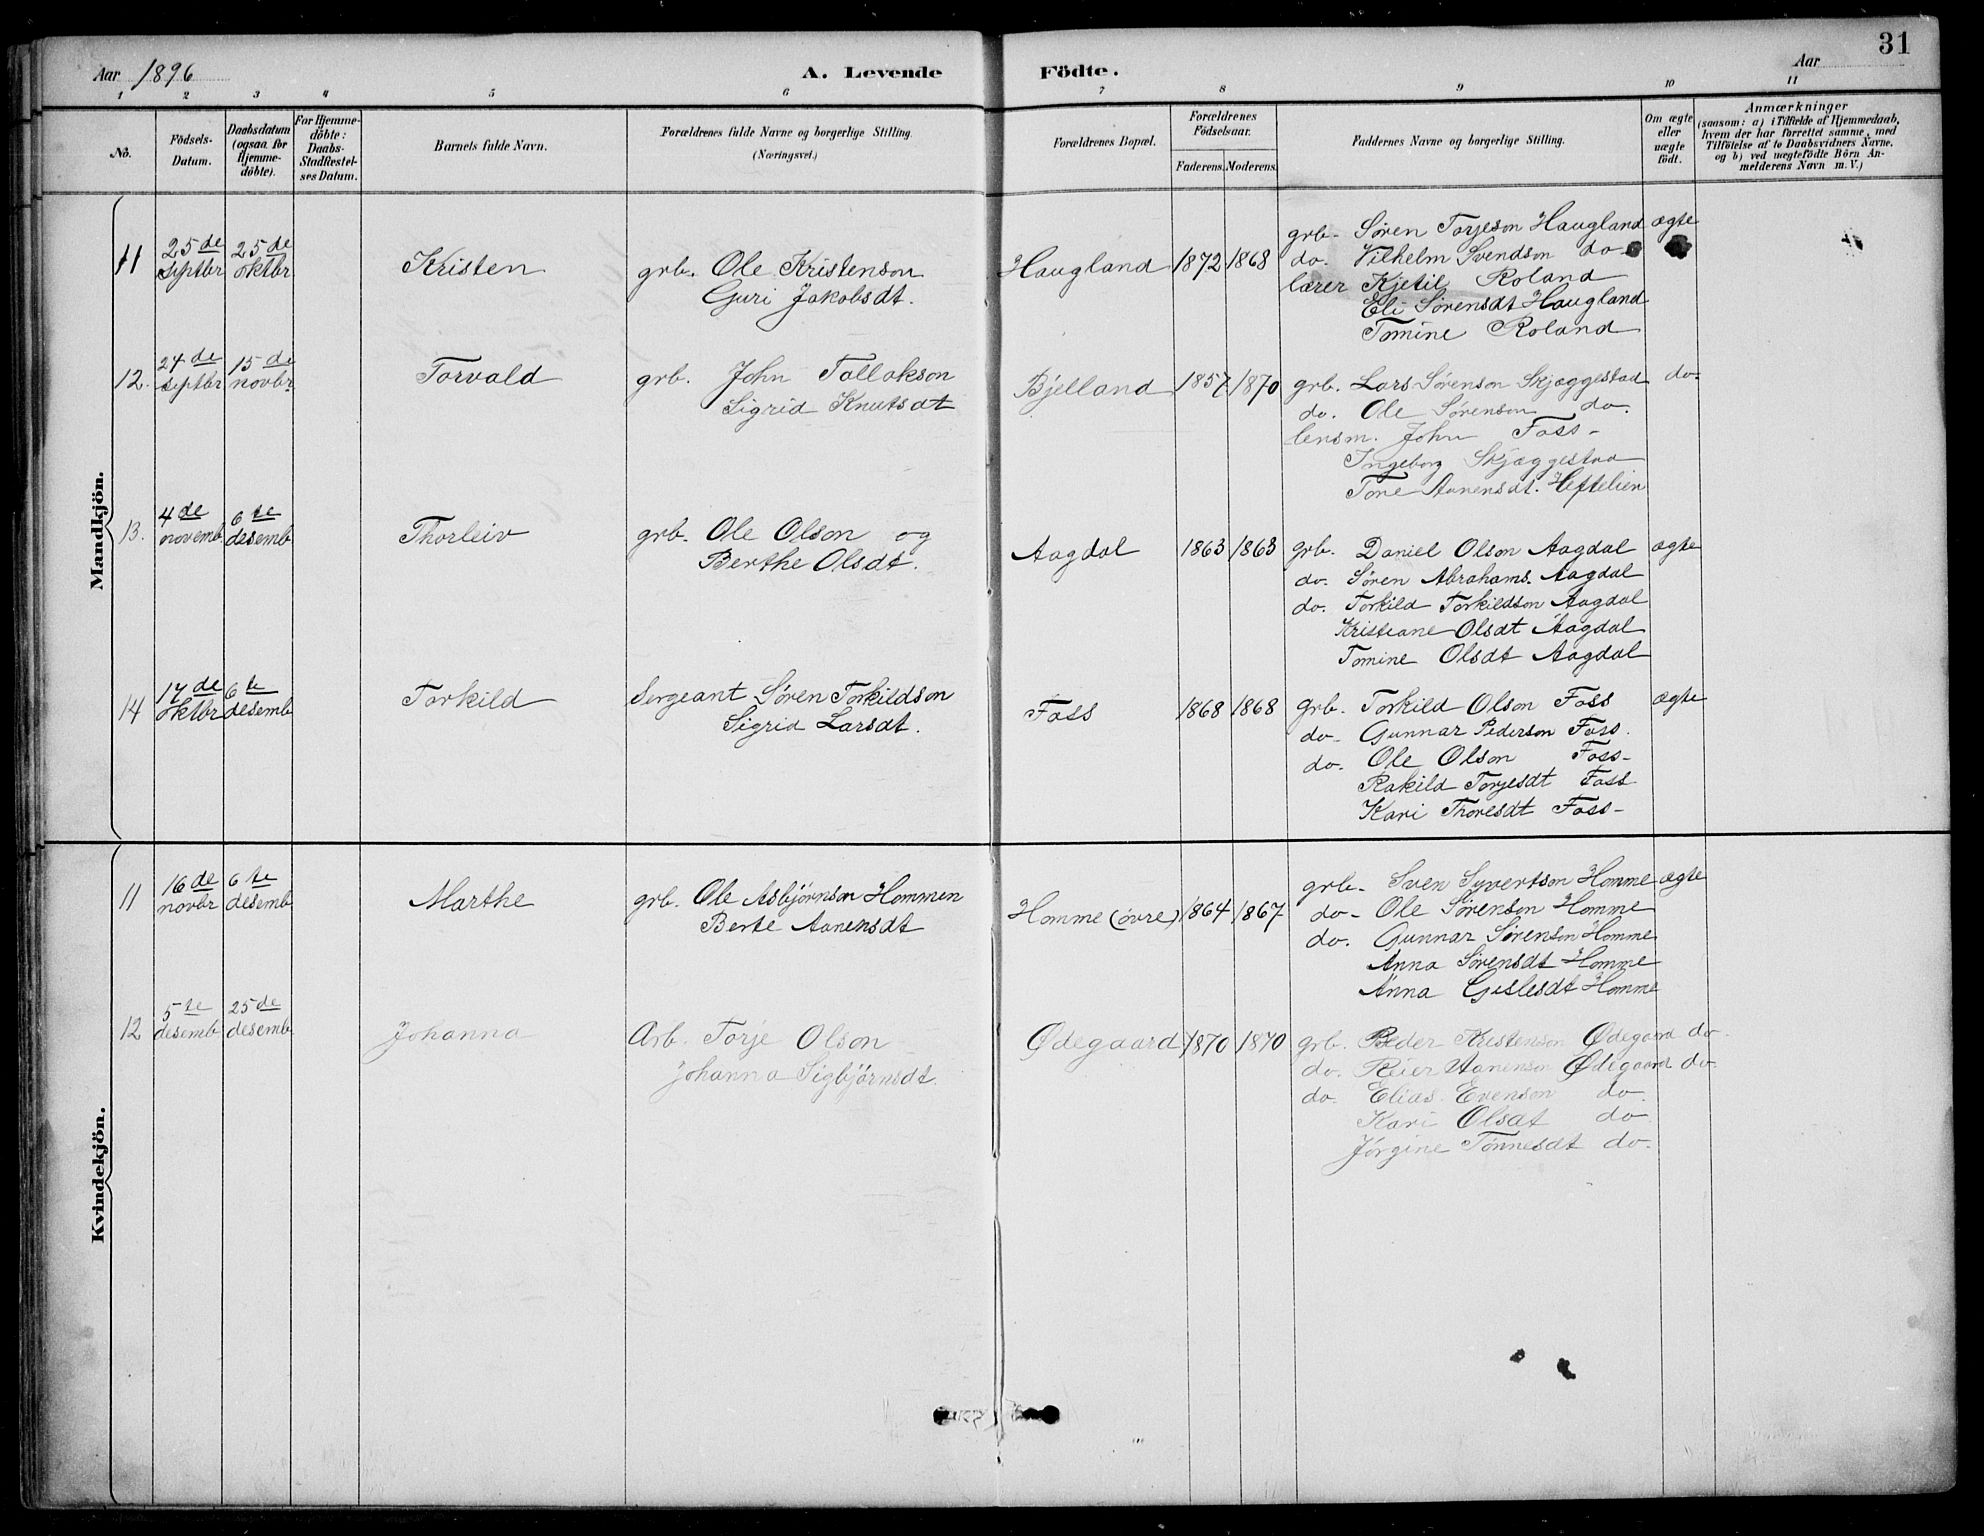 31
Aar 1896
A. Levende
Födte.
Aar
1 2 3 4 5 6 7 8 9 10 11
No.
Födsels-
Datum.
Daabsdatum
(ogsaa for
Hjemme-
döbte).
For Hjemme-
döbte:
Daabs-
Stadfæstel-
ses Datum.
Barnets fulde Navn.
Forældrenes fulde Navne og borgerlige Stilling.
(Næringsvei.)
Forældrenes Bopæl.
Forældrenes
Födselsaar.
Faderens. Moderens.
Faddernes Navne og borgerlige Stilling.
Om ægte
eller
uægte
födt.
Anmærkninger
(saasom: a) i Tilfælde af Hjemmedaab,
hvem der har forrettet samme, med
Tilföielse af to Daabsvidners Navne,
og b) ved uægtefödte Börn An-
melderens Navn m. V.)
Mandkjön.
11
25de
septbr
25de
oktbr
Kristen
grb. Ole Kristenson
Guri Jakobsdt.
Haugland
1872
1868
grb. Søren Torjeson Haugland
do. Vilhelm Svendson do
lærer Kjetil Roland
Eli Sørensdt Haugland
Tomine Roland
ægte
12.
24de
septbr
15de
novbr
Torvald
grb. John Tallakson
Sigrid Knutsdt
Bjelland
1857
1870
grb. Lars Sørenson Skjæggestad
do. Ole Sørenson do.
lensm. John Foss-
Ingeborg Skjæggestad
Tone Aanensdt. Heftelien
do.
13.
4de
novemb
6te
desemb
Thorleiv
grb. Ole Olson og
Berthe Olsdt.
Aagdal
1863
1863
grb. Daniel Olson Aagdal
do. Søren Abrahams. Aagdal
do. Torkild Torkildson Aagdal
Kristiane Olsdt Aagdal
Tomine Olsdt Aagdal
ægte
14
17de
oktbr
6te
desemb
Torkild
Sergeant Søren Torkildson
Sigrid Larsdt.
Foss
1868
1868
grb. Torkild Olson Foss
do. Gunnar Pederson Foss.
do. Ole Olson Foss-
Rakild Torjesdt Foss
Kari Thoresdt Foss-
ægte
Kvindekjön.
11
16de
novbr
6te
desemb
Marthe
grb. Ole Asbjørnson Hommen
Berte Aanensdt
Homme (øvre)
1864
1867
grb. Sven Syvertson Homme
do- Ole Sørenson Homme
do. Gunnar Sørenson Homme
Anna Sørensdt Homme
Anna Gislesdt Homme
ægte
12
5te
desemb
25de
desemb
Johanna
Arb. Torje Olson
Johanna Sigbjørnsdt.
Ødegaard
1870
1870
grb. Peder Kristenson Ødegaard
do. Reier Aanenson Ødegaard do.
do. Elias Evenson do.
Kari Olsdt do
Jørgine Tønnesdt do.
do